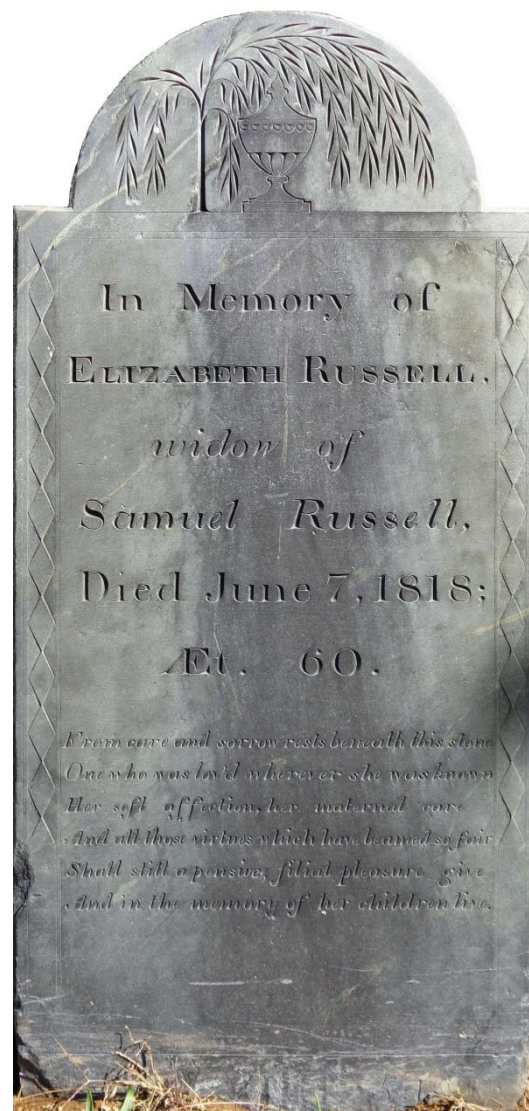 In Memory of
ELIZABETH RUSSELL,
widow of
Samuel Russell,
Died June 7, 1818;
Æt. 60.
From care and sorrow rests beneath this stone
One who was lov'd wherever she was known
Her soft affection, her maternal care
And all those virtues which have beamed so fair
Shall still a pensive, filial pleasure give
And in the memory of her children live.